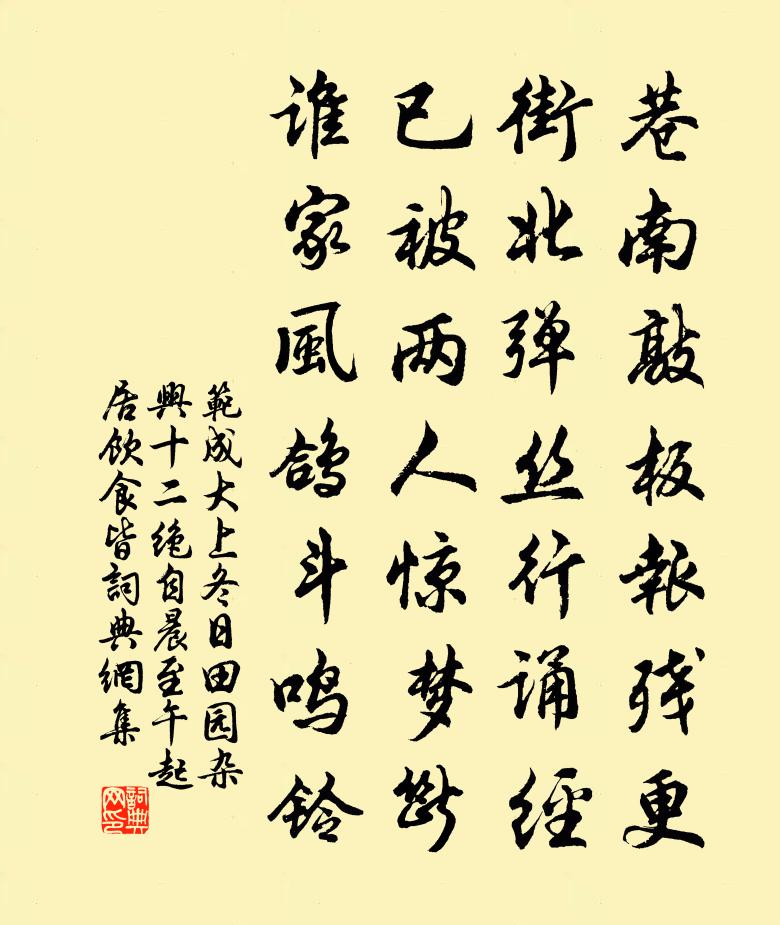 巷南敲板報残更
街北弹丝行诵經
已被两人惊梦斷
谁家風鸽斗鸣铃
範成大上冬日田园杂
興十二绝自晨至午起
居飲食皆詞典網集
詞典
网印